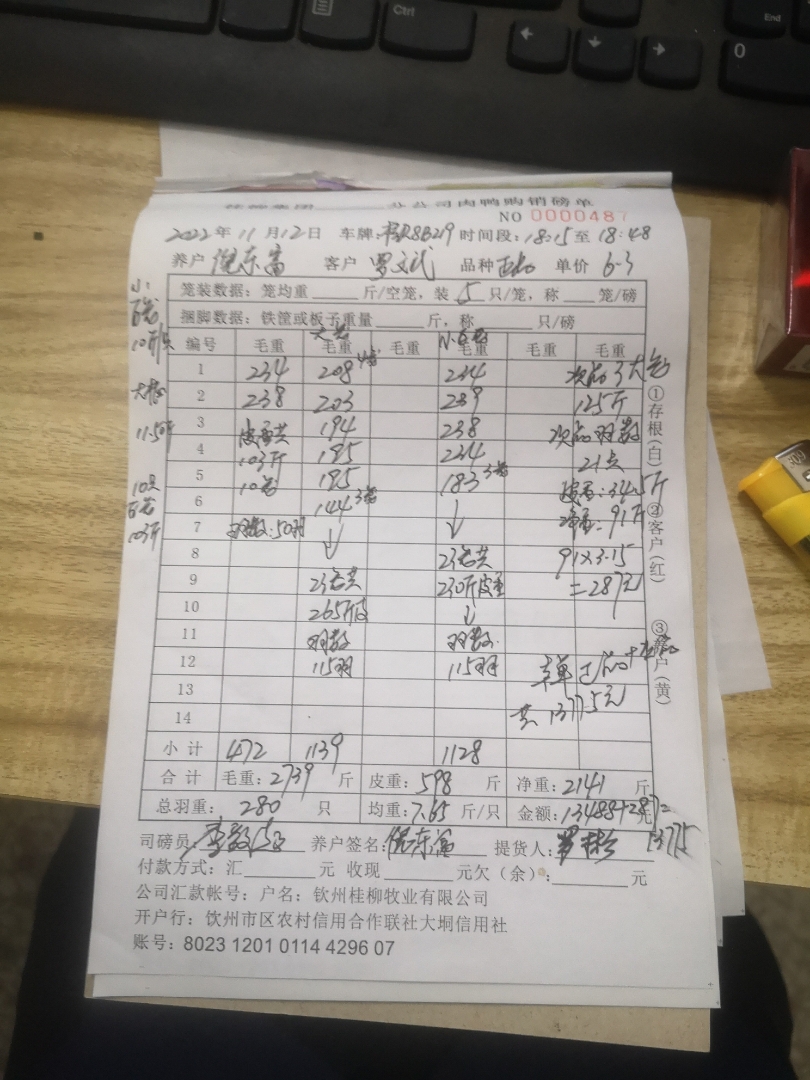 分公司肉鸭购销磅单
NO 0000487
2022年11月12日 车牌: 8B219 时间段:18:15至18:48
养户 倪东富 客户 罗文武 品种 正品 单价 6.3
笼装数据:笼均重 斤/空笼,装 5 只/笼,称 笼/磅
捆脚数据:铁筐或板子重量 斤,称 只/磅
编号 毛重 毛重 毛重 毛重 毛重 毛重
1 234 208 234 次品3大笼
2 238 203 239 125斤
3 皮重共 194 238 次品羽数
4 103斤 195 234 21只
5 10笼 195 183 3笼 皮重:34.5斤
6 144 3笼 ↓ 净重:91斤
7 羽数:50羽 ↓
8 23笼共 91×3.15
9 23笼共 230斤皮重 =287元
10 265斤皮 ↓
11 羽数 羽数
12 115羽 115羽 正品+次品
13 共13775元
14
小计 472 1139 1128
合计 毛重:2739 斤 皮重:598 斤 净重:2141 斤
总羽重: 280 只 均重:7.65 斤/只 金额:13488+287元
=13775
司磅员: 养户签名:倪东富 提货人:
付款方式:汇 元 收现 元欠(余): 元
公司汇款帐号:户名:钦州桂柳牧业有限公司
开户行:钦州市区农村信用合作联社大垌信用社
账号:8023 1201 0114 4296 07
①存根(白)②客户(红)③养户(黄)
小
10斤/只
大笼
11.5斤
10只
103斤